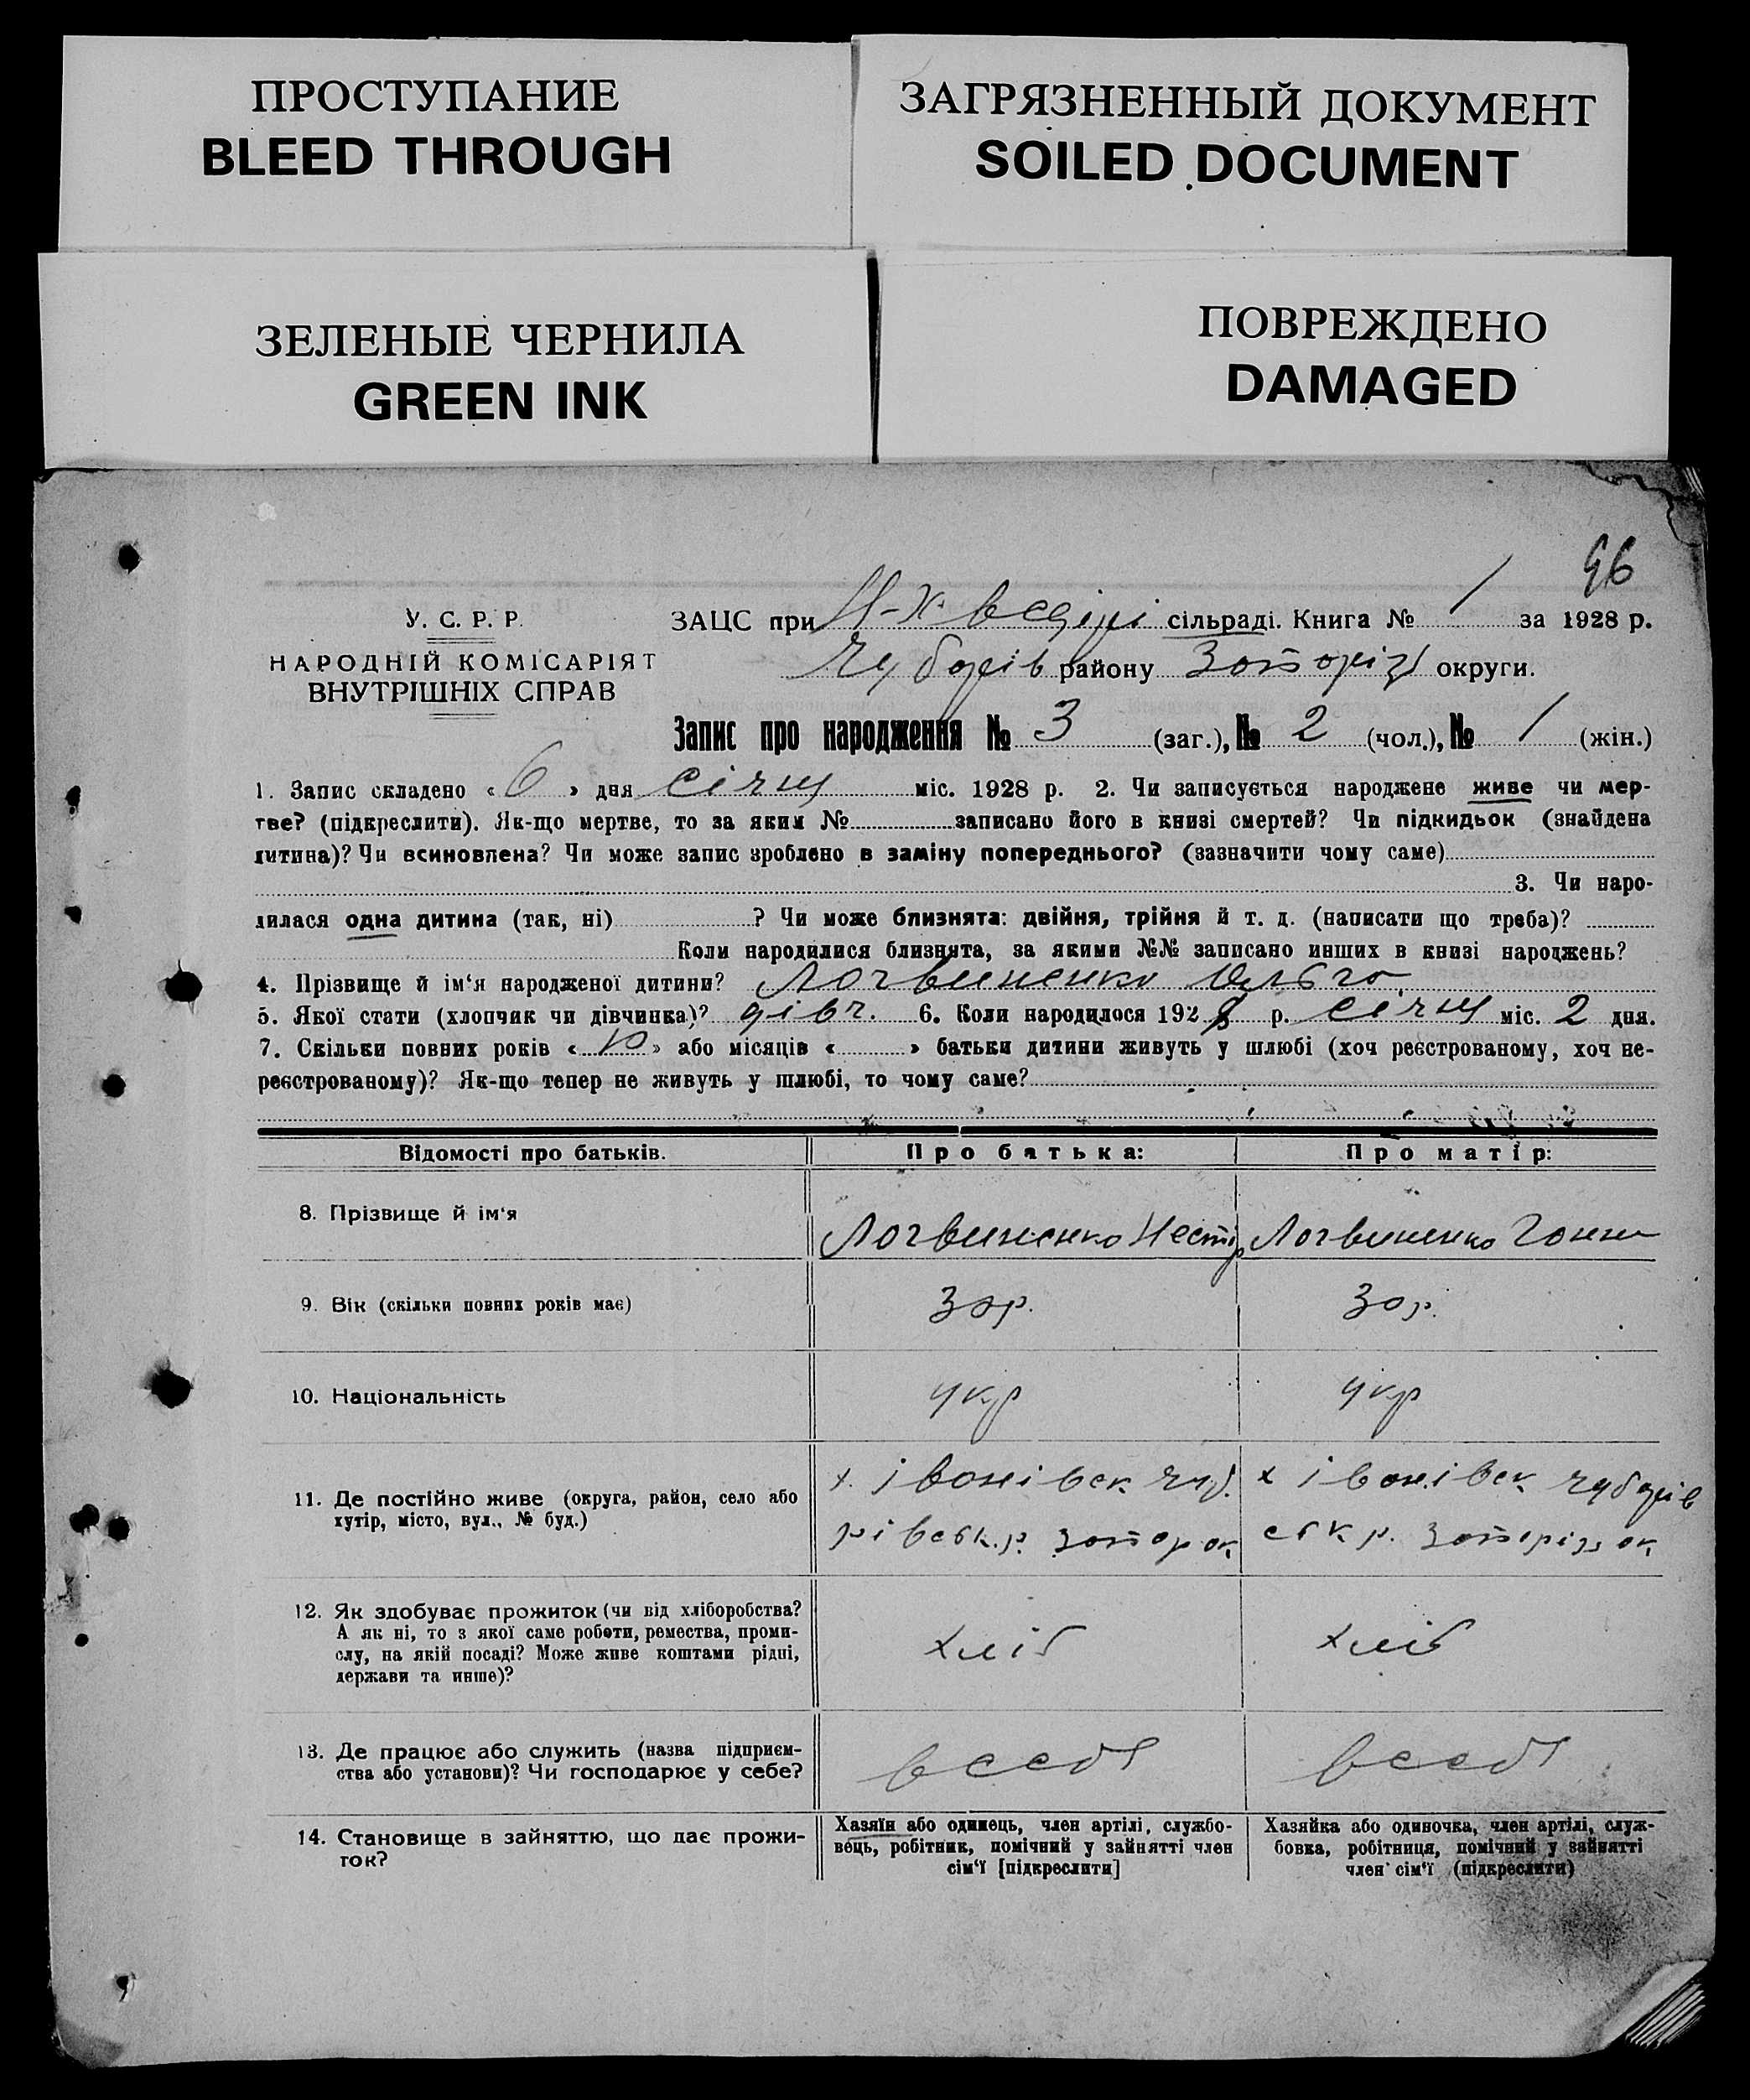 ПРОСТУПАНИЕ
BLEED THROUGH
ЗАГРЯЗНЕННЫЙ ДОКУМЕНТ
SOILED DOCUMENT
ЗЕЛЕНЫЕ ЧЕРНИЛА
GREEN INK
ПОВРЕЖДЕНО
DAMAGED
96
У. С. Р. Р.
НАРОДНІЙ КОМІСАРІЯТ
ВНУТРІШНІХ СПРАВ
ЗАЦС при сільраді. Книга № 1 за 1928 р.
Чубарів району Запоріз округи.
Запис про народження № 3 (заг.), № 2 (чол.), № 1 (жін.)
1. Запис складено « 6 » дня січня міс. 1928 р. 2. Чи записується народжене живе чи мер-
тве? (підкреслити). Як-що мертве, то за яким № записано його в книзі смертей? Чи підкидьок (знайдена
дитина)? Чи всиновлена? Чи може запис зроблено в заміну попереднього? (зазначити чому саме)
3. Чи наро-
дилася одна дитина (так, ні) ? Чи може близнята: двійня, трійня й т. д. (написати що треба)?
Коли народилися близнята, за якими №№ записано инших в книзі народжень?
4. Прізвище й ім'я народженої дитини? Логвиненко Ольга
5. Якої стати (хлопчик чи дівчинка)? дівч. 6. Коли народилося 1928 р. січня міс. 2 дня.
7. Скільки повних років « 10 » або місяців « » батьки дитини живуть у шлюбі (хоч реєстрованому, хоч не-
реєстрованому)? Як-що тепер не живуть у шлюбі, то чому саме?
Відомості про батьків. Про батька: Про матір:
8. Прізвище й ім'я Логвиненко Нестір Логвиненко Ганна
9. Вік (скільки повних років має) 30р. 30р.
10. Національність укр укр
11. Де постійно живе (округа, район, село або
хутір, місто, вул., № буд.)
х. Іванівськ Чуб.
рівськ.р. Запор ок
х Іванівськ Чубарів
ськ р. Запоріз ок
12. Як здобуває прожиток (чи від хліборобства?
А як ні, то з якої саме роботи, ремества, проми-
слу, на якій посаді? Може живе коштами рідні,
держави та инше)?
хліб хліб
13. Де працює або служить (назва підприєм-
ства або установи)? Чи господарює у себе?
в себя в себя
14. Становище в зайняттю, що дає прожи-
ток?
Хазяїн або одинець, член артілі, службо-
вець, робітник, помічний у зайнятті член
сім'ї [підкреслити]
Хазяйка або одиночка, член артілі, служ-
бовка, робітниця, помічний у зайнятті
член сім'ї (підкреслити)